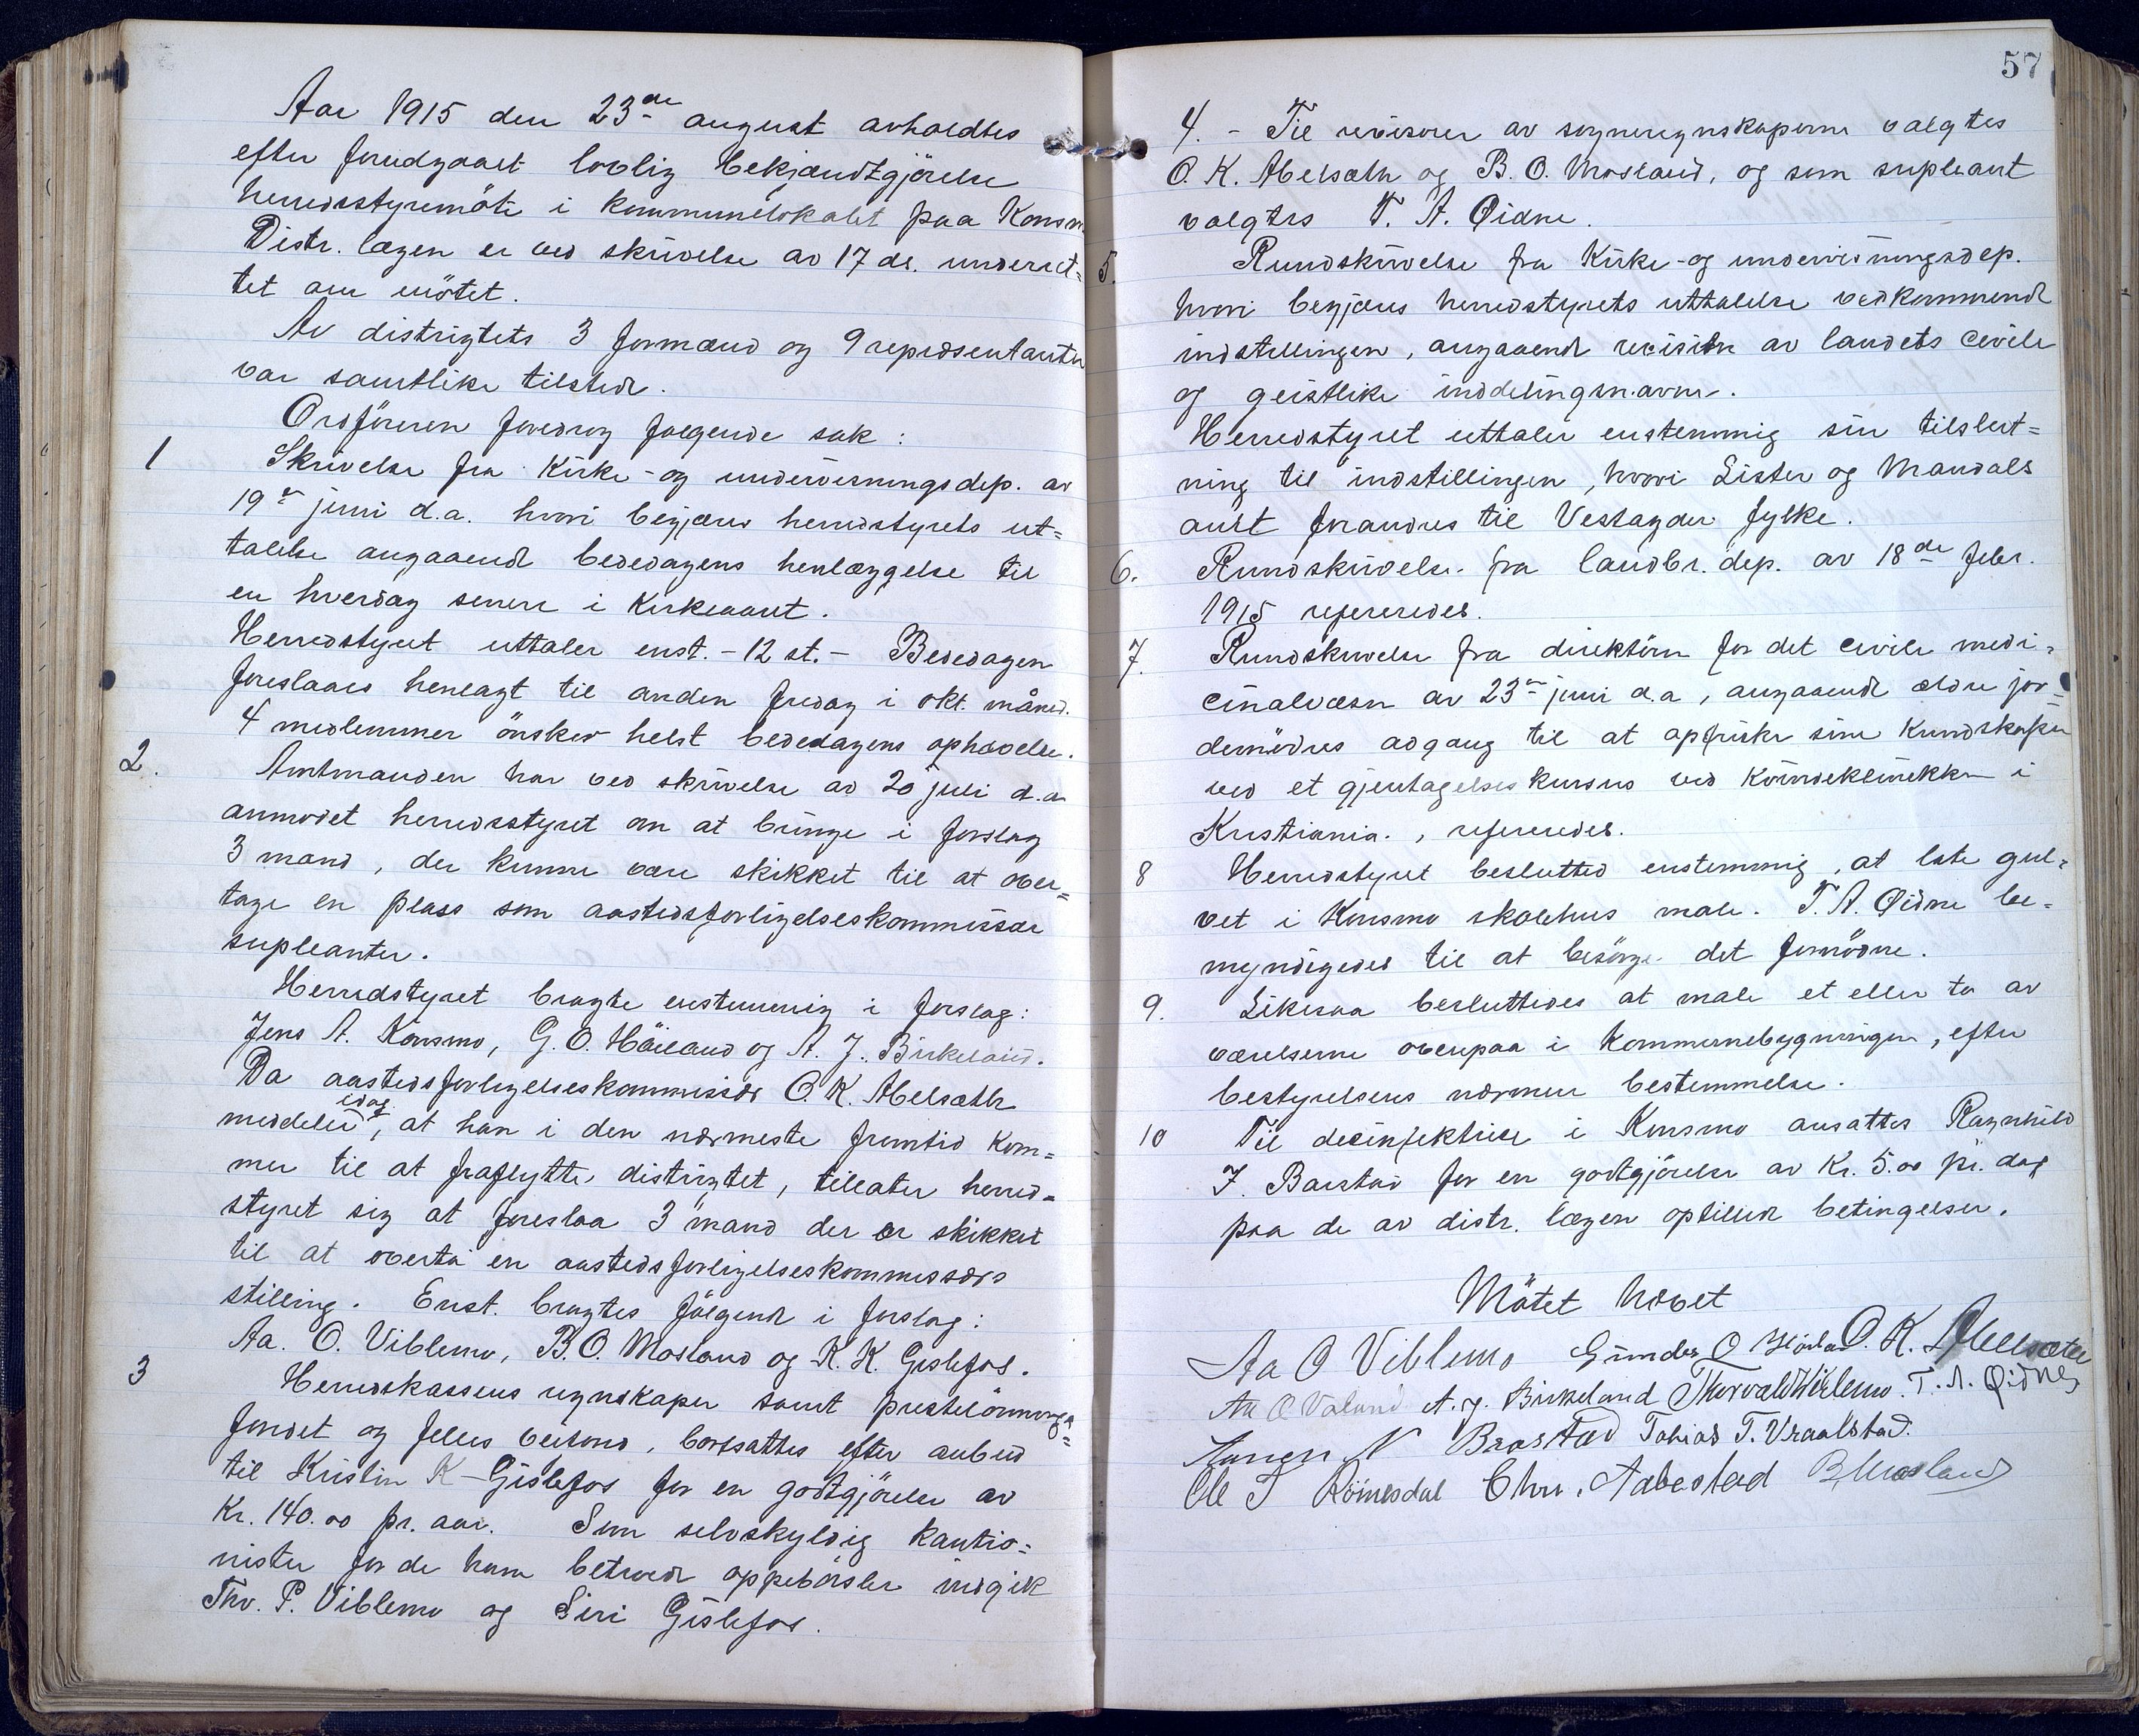 Aar 1915 den 23de august avholdtes
efter forudgaaet lovlig bekjendtgjörelse
herredsstyremöte i kommunelokalet paa Konsmo
Distr. lægen er ved skrivelse av 17 ds. underret-
tet om mötet.
Av distrigtets 3 formænd og 9 repræsentanter
var samtlike tilstede.
Ordföreren foredrog fölgende sak:
1 Skrivelse fra Kirke- og undervisningsdep. av
19de juni d.a. hvori begjæres herredstyrets ut=
talelse angaaende bededagens henlæggelse til
en hverdag senere i Kirkeaaret.
Herredstyret uttaler enst. - 12 st. - Bededagen
foreslaaes henlagt til anden fredag i okt. måned.
4 medlemmer önsker helst bededagens ophævelse.
2. Amtmanden har ved skrivelse av 20 juli d.a
anmodet herredsstyret om at bringe i forslag
3 mænd, der kunne være skikket til at over=
tage en plass som aastedsforligelseskommissær
supleanter.
Herredstyret bragte enstemmig i forslag:
Jens A. Konsmo, G. O. Höiland og A. J. Birkeland.
Da aastedsforligelseskommissær O. K. Abelsæth
idag
meddeler, at han i den nærmeste fremtid kom=
mer til at fraflytte distrigtet, tillater herred=
styret sig at foreslaa 3 mand der er skikket
til at overta en aastedsforligelseskommissærs
stilling. Enst. bragtes fölgende i forslag:
Aa. O. Viblemo, B. O. Mosland og K. K. Gislefos.
3 Herredskassens regnskaper samt prestelönnings=
fondet og felles veifond, bortsattes efter anbud
til Kristin K - Gislefos for en godtgjörelse av
Kr. 140.00 pr. aar. Som selvskyldig kautio=
nister for de ham betroede oppebörsler indgik
Thv. P. Viblemo og Siri Gislefos.
57
4. - Til revisorer av sogneregnskaperne valgtes
O. K. Abelsæth og B. O. Mosland, og som supleant
valgtes T. A. Øidne.
5. Rundskrivelse fra Kirke- og undervisningsdep.
hvori begjæres herredstyrets uttalelse vedkommende
indstillingen, angaaende revision av landets civile
og geistlike inddelingsnavne.
Herredstyret uttaler enstemmig sin tilslut=
ning til indstillingen, hvori Lister og Mandals
amt forandres til Vestagder fylke.
6. Rundskrivelse fra landbr. dep. av 18de febr.
1915 refereredes.
7. Rundskrivelse fra direktören for det civile medi=
cinalvæsen av 23de juni d.a, angaaende ældre jor=
demödres adgang til at opfriske sine Kundskaper
ved et gjentagelseskursus ved Kvindeklinikken i
Kristiania., refereredes.
8 Herredstyret beslutted enstemmig, at late gul=
vet i Konsmo skolehus male. T. A. Øidne be=
myndigedes til at besörge det fornödne.
9. Likesaa besluttedes at male et eller to av
værelserne ovenpaa i Kommunebygningen, efter
bestyrelsens nærmere bestemmelse.
10 Til desinfektrise i Konsmo ansattes Ragnhild
J. Barstad for en godtgjörelse av Kr. 5.00 pr. dag
paa de av distr. lægen optillede betingelser.
Mötet hævet
Aa O Viblemo Gunder O Höiland O. K. Abelsæth
Aa O Valand A. J. Birkeland Thorvald Viblemo. T. A. Øidne
N Baastad Tobias T. Vraalstad.
Ole T Röinesdal Chr. Aabestad B Mosland